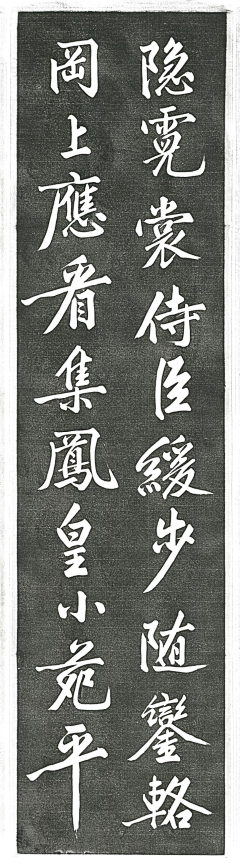 隐霓裳侍臣緩步随鑾輅
岡上應看集鳳皇小苑平